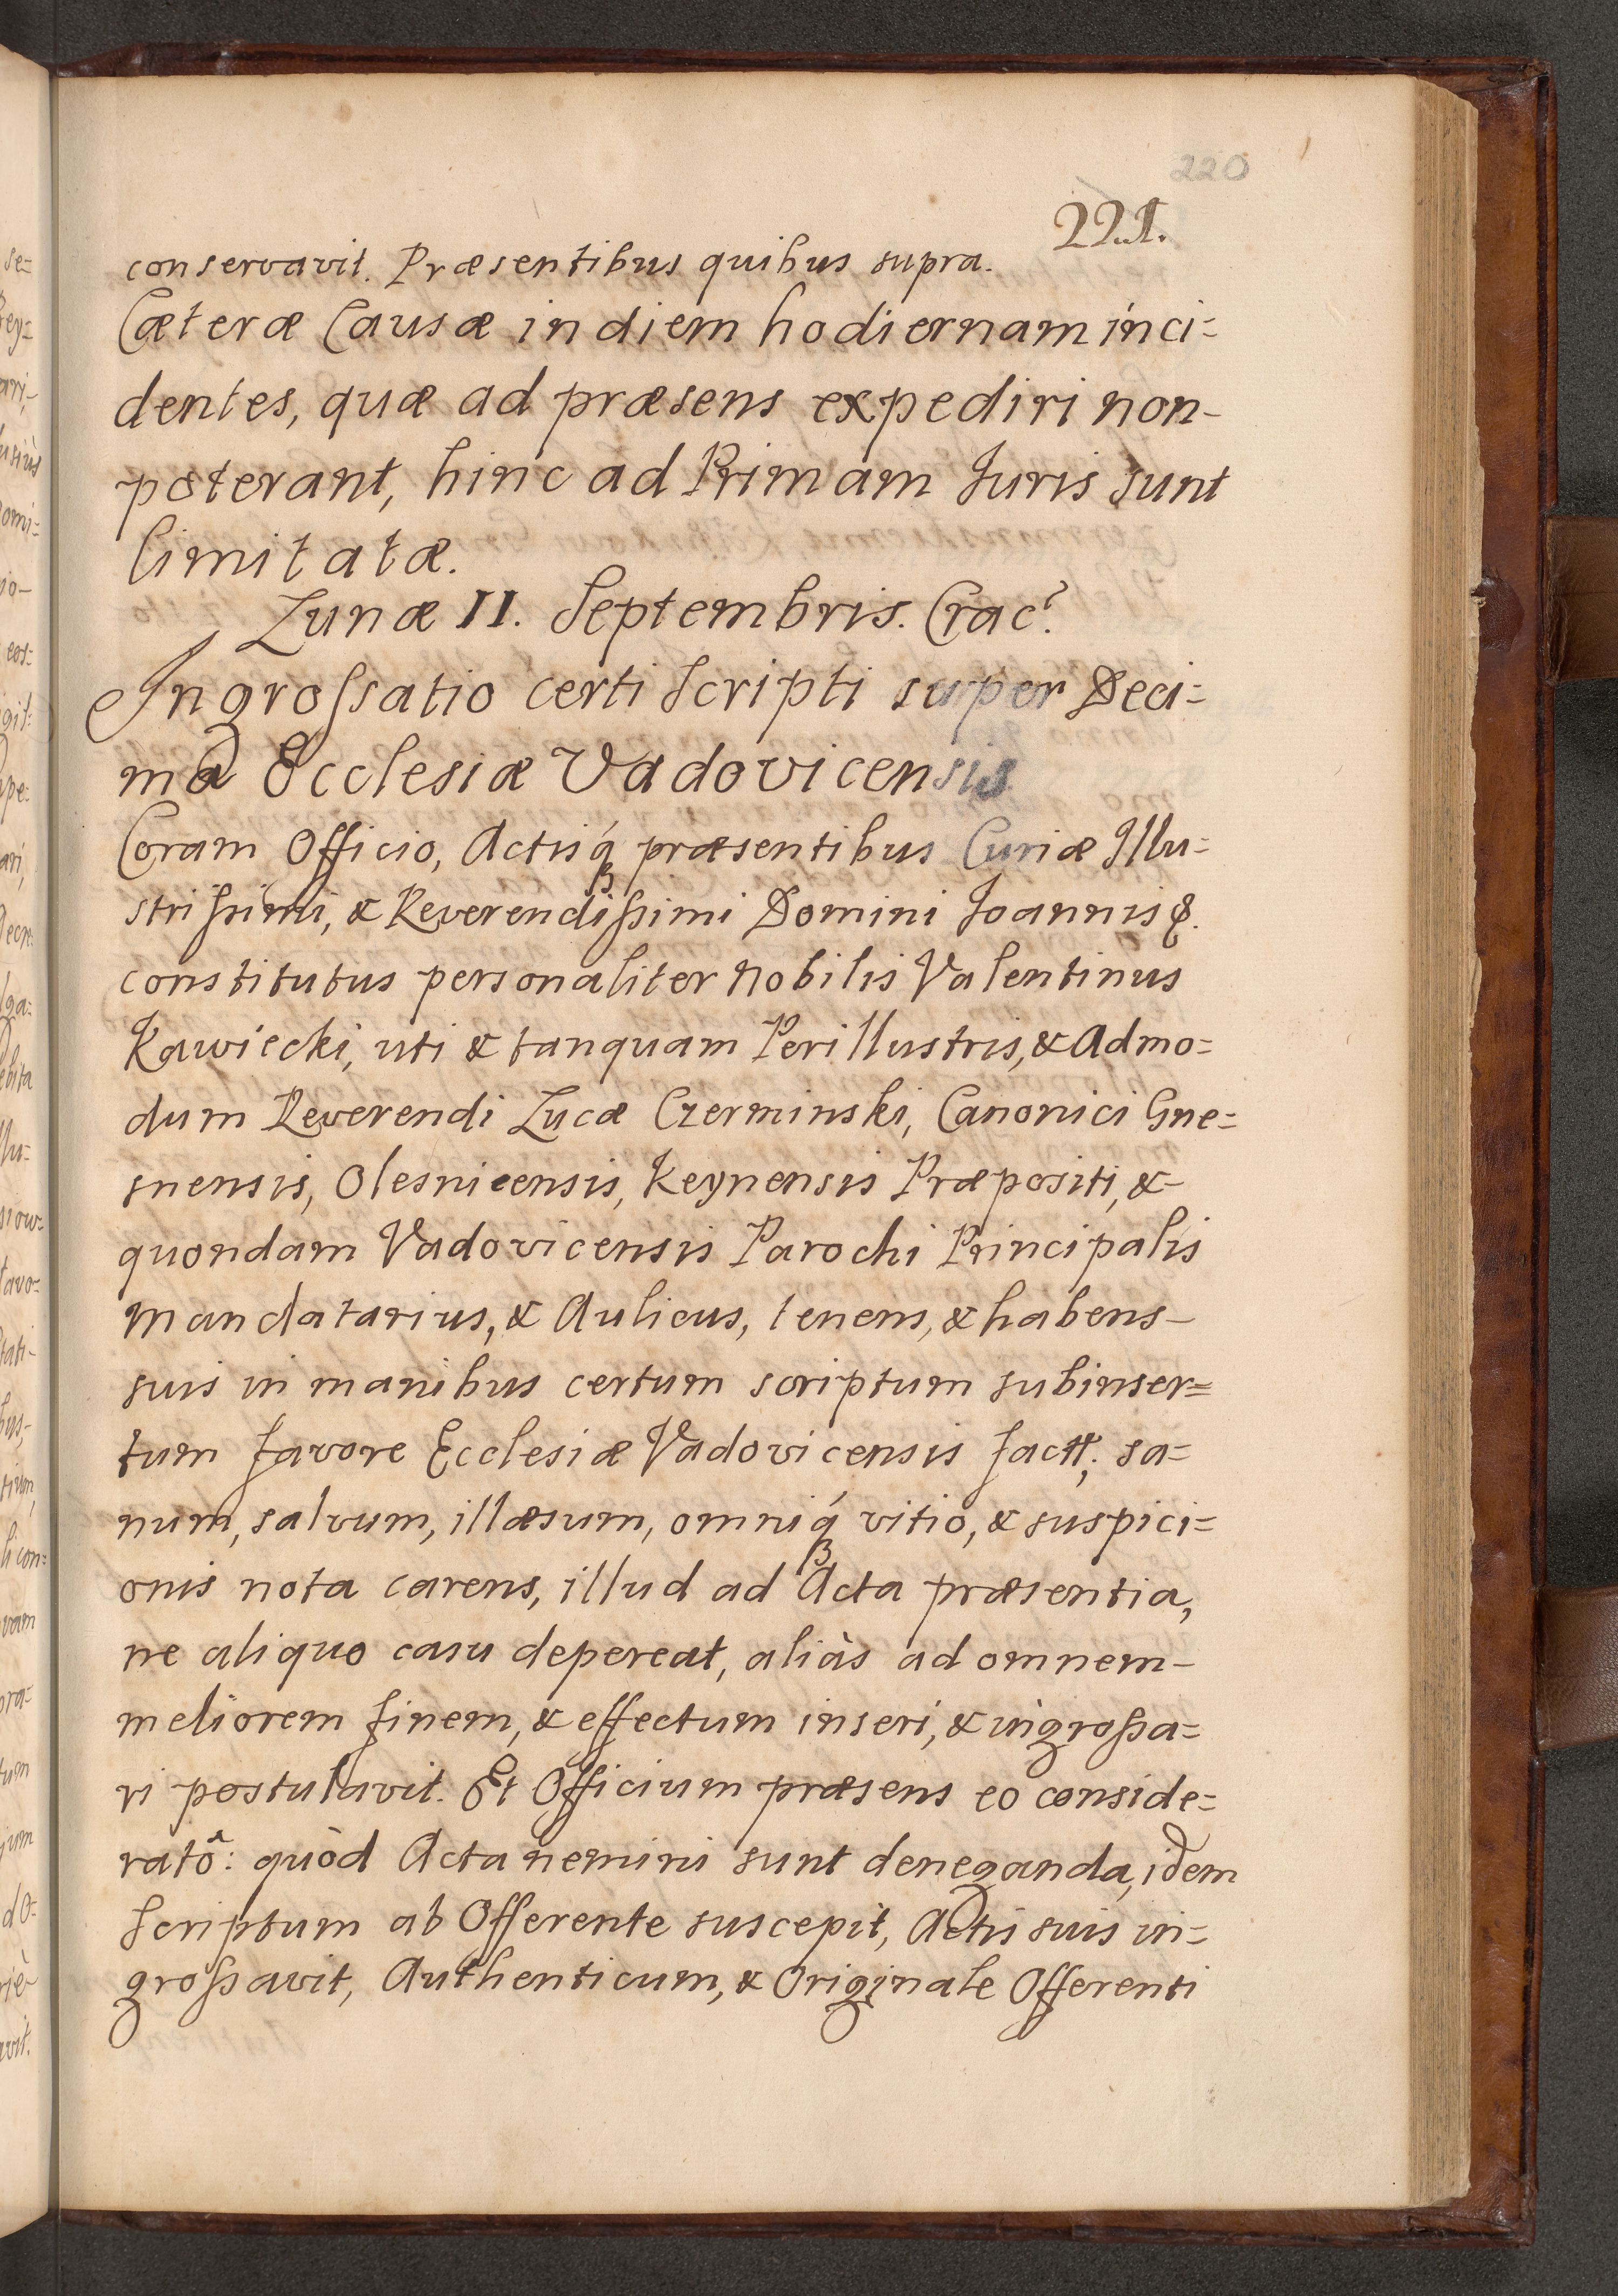 220
221.
conservavit. Præsentibus quibus supra.
Cæteræ Causæ in diem hodiernam inci=
dentes, quæ ad præsens expediri non-
poterant, hinc ad Primam Juris sunt
limitatæ.
Lunæ II. Septembris. Crac?
Ingrossatio certi Scripti super Deci=
ma Ecclesiæ Vadovicensis
Coram Officio, Actisq́ præsentibus Curiæ Illu=
strißimi, & Reverendißimi Domini Joannis &.
constitutus personaliter Nobilis Valentinus
Kawiecki, uti & tanquam Perillustris, & Admo=
dum Reverendi Lucæ Czerminski, Canonici Gne=
snensis, Olesnicensis, Keynensis Præpositi, &-
quondam Vadovicensis Parochi Principalis
Mandatarius, & Aulicus, tenens, & habens-
suis in manibus certum scriptum subinser=
tum favore Ecclesiæ Vadovicensis factt; sa=
num, salvum, illæsum, omniq́ vitio, & suspici=
onis nota carens, illud ad Acta præsentia,
ne aliquo casu depereat, aliàs ad omnem-
meliorem finem, & effectum inseri, & ingroßa=
ri postulavit. Et Officium præsens eo conside=
ratô: quòd Acta nemini sunt deneganda, idem
Scriptum ab Offerente suscepit, Actis suis in=
großavit, Authenticum, & Originale Offerenti